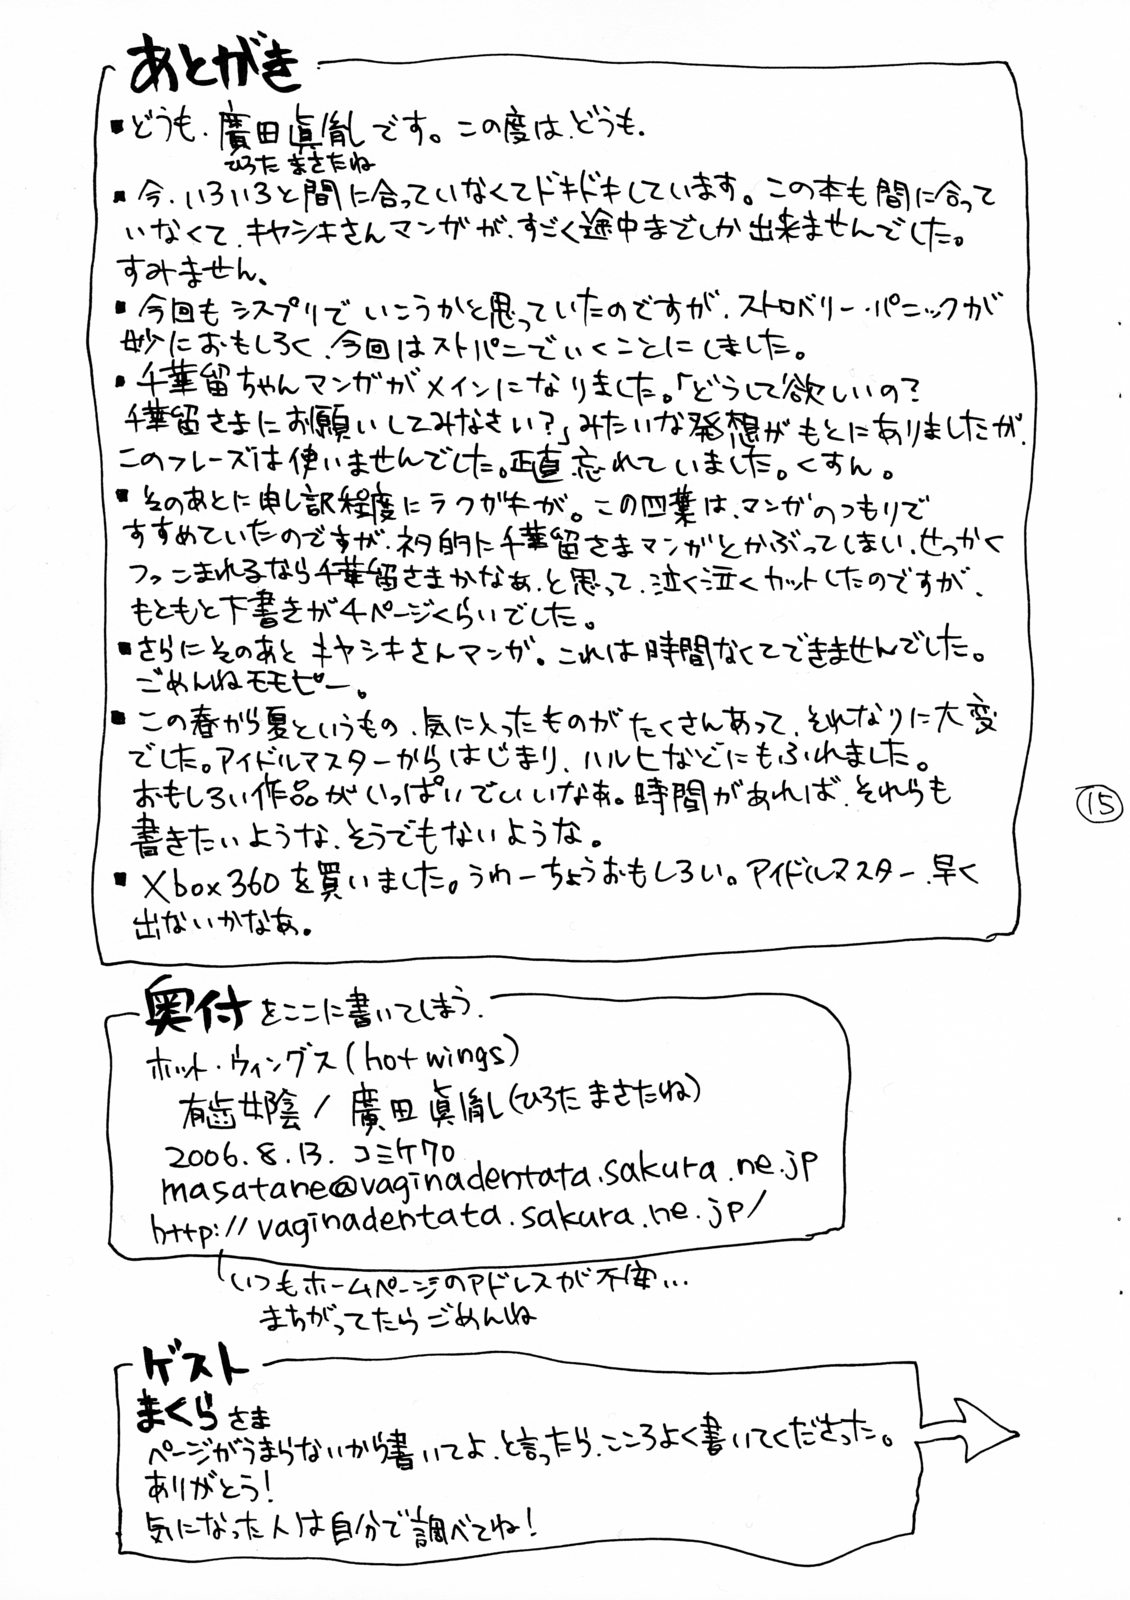 あとがき
▪どうも、廣田眞胤です。この度は、どうも。
ひろた まさたね
▪今、いろいろと間に合っていなくてドキドキしています。この本も間に合って
いなくて、キヤシキさんマンガが、すごく途中までしか出来ませんでした。
すみません。
▪今回もシスプリでいこうかと思っていたのですが、ストロベリー・パニックが
妙におもしろく、今回はストパニでいくことにしました。
▪千華留ちゃんマンガがメインになりました。「どうして欲しいの?
千華留さまにお願いしてみなさい?」みたいな発想がもとにありましたが、
このフレーズは使いませんでした。正直忘れていました。くすん。
▪そのあとに申し訳程度にラクガキが。この四葉は、マンガのつもりで
すすめていたのですが、ネタ的に千華留さまマンガとかぶってしまい、せっかく
つっこまれるなら千華留さまかなぁ、と思って、泣く泣くカットしたのですが、
もともと下書きが4ページくらいでした。
▪さらにそのあとキヤシキさんマンガ。これは時間なくてできませんでした。
ごめんねモモピー。
▪この春から夏というもの、気に入ったものがたくさんあって、それなりに大変
でした。アイドルマスターからはじまり、ハルヒなどにもふれました。
おもしろい作品がいっぱいでいいなぁ。時間があれば、それらも
書きたいような、そうでもないような。
▪Xbox360を買いました。うわーちょうおもしろい。アイドルマスター、早く
出ないかなあ。
15
奥付をここに書いてしまう。
ホット・ウィングス(hot wings)
有歯女陰/廣田眞胤(ひろた まさたね)
2006.8.13. コミケ70
masatane@vaginadentata.sakura.ne.jp
http://vaginadentata.sakura.ne.jp/
いつもホームページのアドレスが不安...
まちがってたらごめんね
ゲスト
まくらさま
ページがうまらないから書いてよ、と言ったら、こころよく書いてくださった。
ありがとう!
気になった人は自分で調べてね!